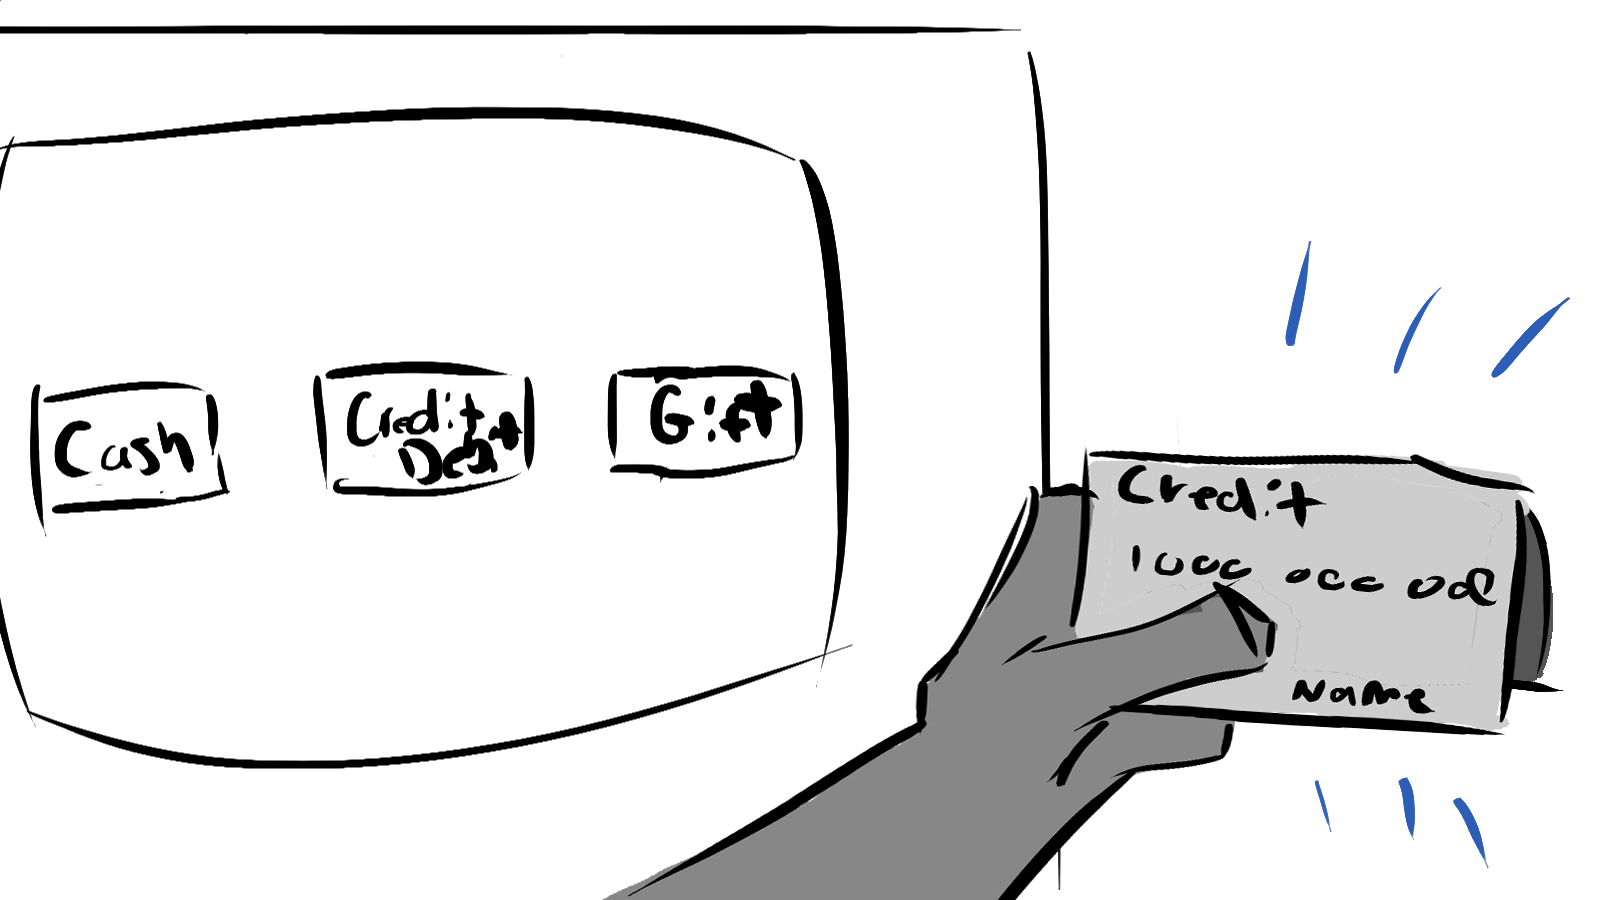 Cash
Credit
Debit
Gift
Credit
1000 000 000
Name